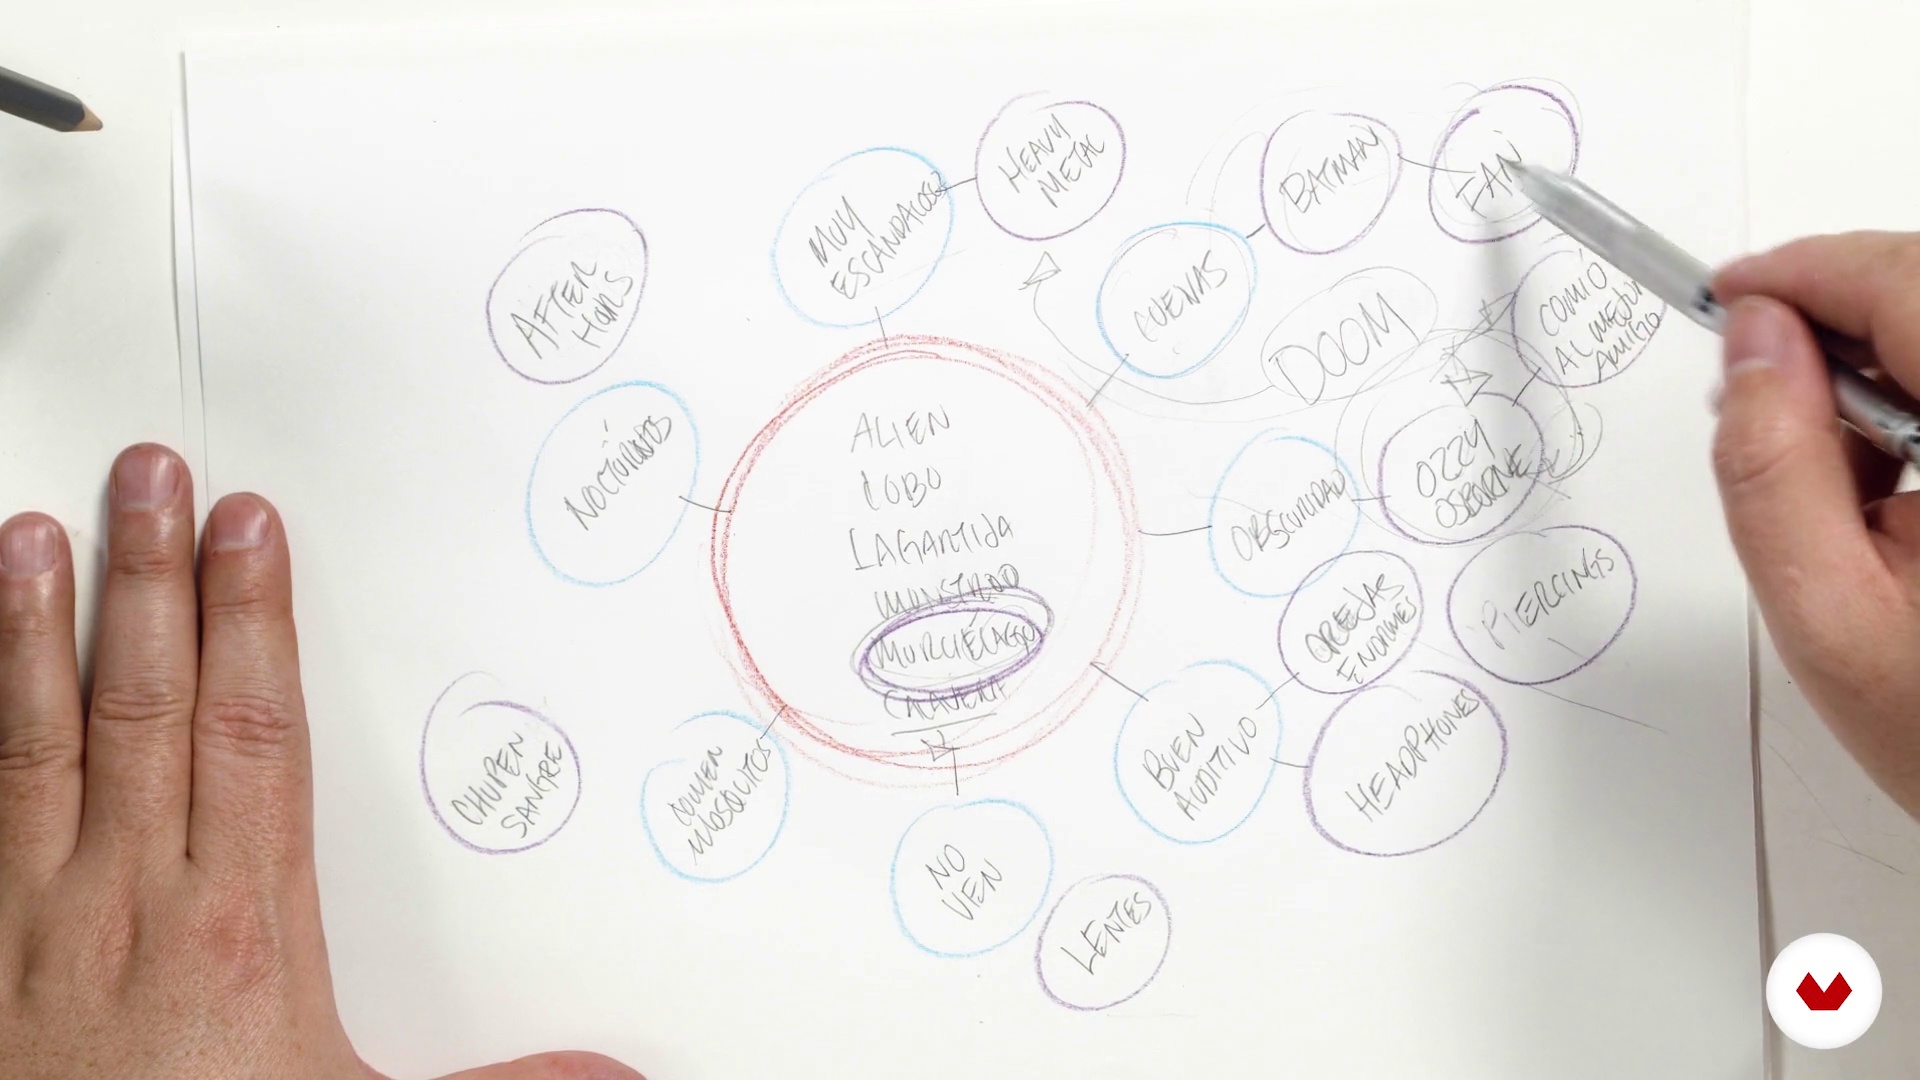 HEAVY
METAL
BATMAN
FAN
MUY
ESCANDALOSO
AFTER
HORS
CUEVAS
COMIÓ
AL MEJOR
AMIGO
DOOM
ALIEN
LOBO
LAGARTIJA
MONSTRUO
MURCIÉLAGO
CALAVERA
NOCTURNOS
OBSCURIDAD
OZZY
OSBORNE
OREJAS
ENORMES
PIERCINGS
BUEN
AUDITIVO
HEADPHONES
CHUPEN
SANGRE
COMEN
MOSQUITOS
NO
VEN
LENTES